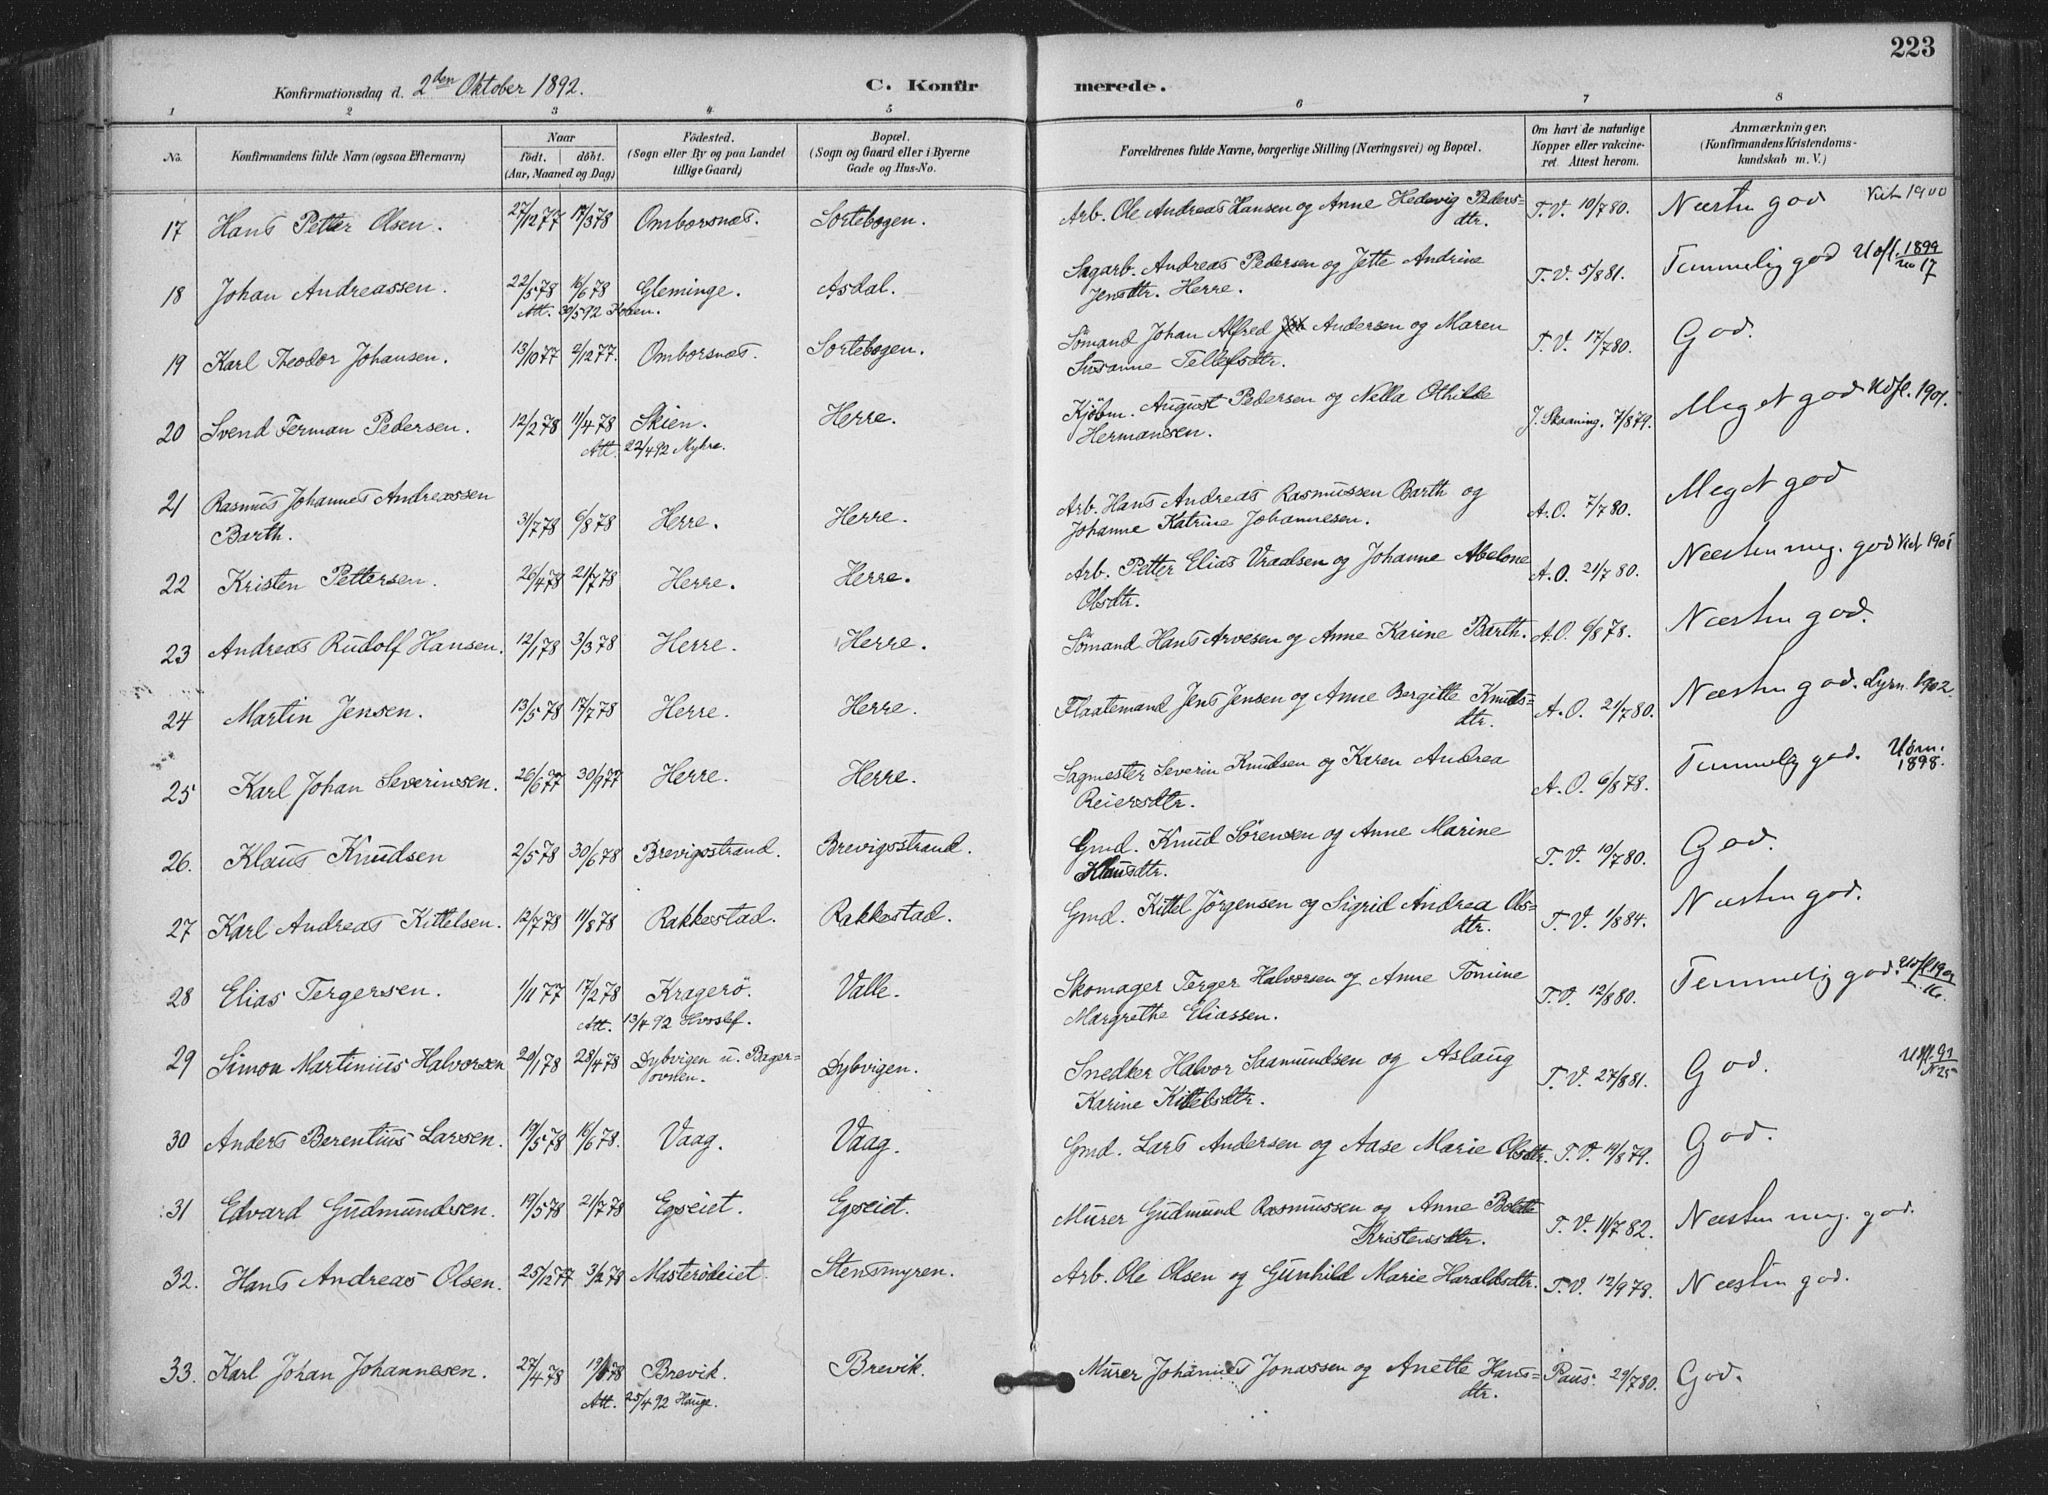 223
Konfirmationsdag d. 2den Oktober 1892. C. Konfirmerede.
1 2 3 4 5 6 7 8
No. Konfirmandens fulde Navn (ogsaa Efternavn) Naar födt. döbt. (Aar, Maaned og Dag) Födested. (Sogn eller By og paa Landet tillige Gaard) Bopæl. (Sogn og Gaard eller i Byerne Gade og Hus-No. Forældrenes fulde Navne, borgerlige Stilling (Næringsvei) og Bopæl. Om havt de naturlige Kopper eller vakcineret. Attest herom. Anmærkninger. (Konfirmandens Kristendomskundskab m. V.)
17 Hans Petter Olsen. 27/12 77 17/3 78 Omborsnæs. Sortebogen. Arb. Ole Andreas Hansen og Anne Hedevig Peders=
dtr. T. V. 10/7 80. Næsten god 1900
18 Johan Andreassen. 22/5 78 16/6 78 Gleminge. Asdal. Sagarb. Andreas Pedersen og Jette Andrine
Jensdtr. Herre. T. V. 5/8 81. Temmelig god Udfl. 1899/no 17
Att. 30/5 92
19 Karl Theodor Johansen. 13/10 77 2/12 77. Omborsnæs. Sortebogen. Sömand Johan Alfred Andersen og Maren
Susanne Tellefsdtr. T. V. 17/7 80. God.
20 Svend Ferman Pedersen. 12/2 78 11/4 78 Skien. Herre. Kjöbm. August Pedersen og Nella Othilde
Hermansen. J. Skaaning. 7/8 79. Meget god Udfl. 1901.
Att. 22/4 92 Myhre.
21 Rasmus Johannes Andreassen
Barth. 31/7 78 6/8 78 Herre. Herre. Arb. Hans Andreas Rasmussen Barth og
Johanne Katrine Johannesen. A. O. 7/7 80. Meget god
22 Kristen Pettersen. 26/4 78 21/7 78 Herre. Herre. Arb. Petter Elias Vraalsen og Johanne Abelone
Olsdtr. A. O. 21/7 80. Næsten meg. god 1901
23 Andreas Rudolf Hansen. 12/1 78 3/3 78 Herre. Herre. Sömand Hans Arvesen og Anne Karine Barth. A. O. 6/8 78. Næsten god.
24 Martin Jensen. 13/5 78 17/7 78 Herre. Herre. Flaatemand Jens Jensen og Anne Bergitte Knuds=
dtr. A. O. 21/7 80. Næsten god. Lyrn. 1902.
25 Karl Johan Severinsen. 26/6 77 30/9 77 Herre. Herre. Sagmester Severin Knudsen og Karen Andrea
Reiersdtr. A. O. 6/8 78. Temmelig god. 1898.
26. Klaus Knudsen 2/5 78 30/6 78 Brevigsstrand. Brevigsstrand. Gmd. Knud Sörensen og Anne Marine
Klausdtr. T. V. 10/7 80. God.
27 Karl Andreas Kittelsen. 12/7 78 11/8 78 Rakkestad. Rakkestad. Gmd. Kittel Jörgensen og Sigrid Andrea Ols=
dtr. T. V. 1/8 84. Næsten god.
28 Elias Tergersen. 1/11 77 17/2 78 Kragerö. Valle. Skomager Terger Halvorsen og Anne Tomine
Margrethe Eliassen. T. V. 12/8 80. Temmelig god. Udfl. 1902
Att. 13/4 92 Hvoslef.
29 Simon Martinius Halvorsen 20/1 78 28/4 78 Dybvigen u. Bager=
ovnen. Dybvigen. Snedker Halvor Saamundsen og Aslaug
Karine Kittelsdtr. T. V. 27/8 81. God. Udfl. 97/N 25
30 Anders Berentius Larsen. 19/5 78 16/6 78. Vaag. Vaag. Gmd. Lars Andersen og Aase Marie Olsdtr. T. V. 19/8 79. God.
31 Edvard Gudmundsen. 19/5 78 21/7 78 Egseiet. Egseiet. Murer Gudmund Rasmussen og Anne Bolette
Kristensdtr. T. V. 11/7 82. Næsten meg. god.
32. Hans Andreas Olsen. 25/12 77 3/2 78 Masterödeiet. Stensmyren. Arb. Ole Olsen og Gunhild Marie Haraldsdtr. T. V. 12/9 78. Næsten god.
33. Karl Johan Johannesen. 27/4 78 Brevik. Brevik. Murer Johannes Jonassen og Anette Hans=
dtr. Paus. 29/7 80. God.
Att. 25/4 92 Hauge.